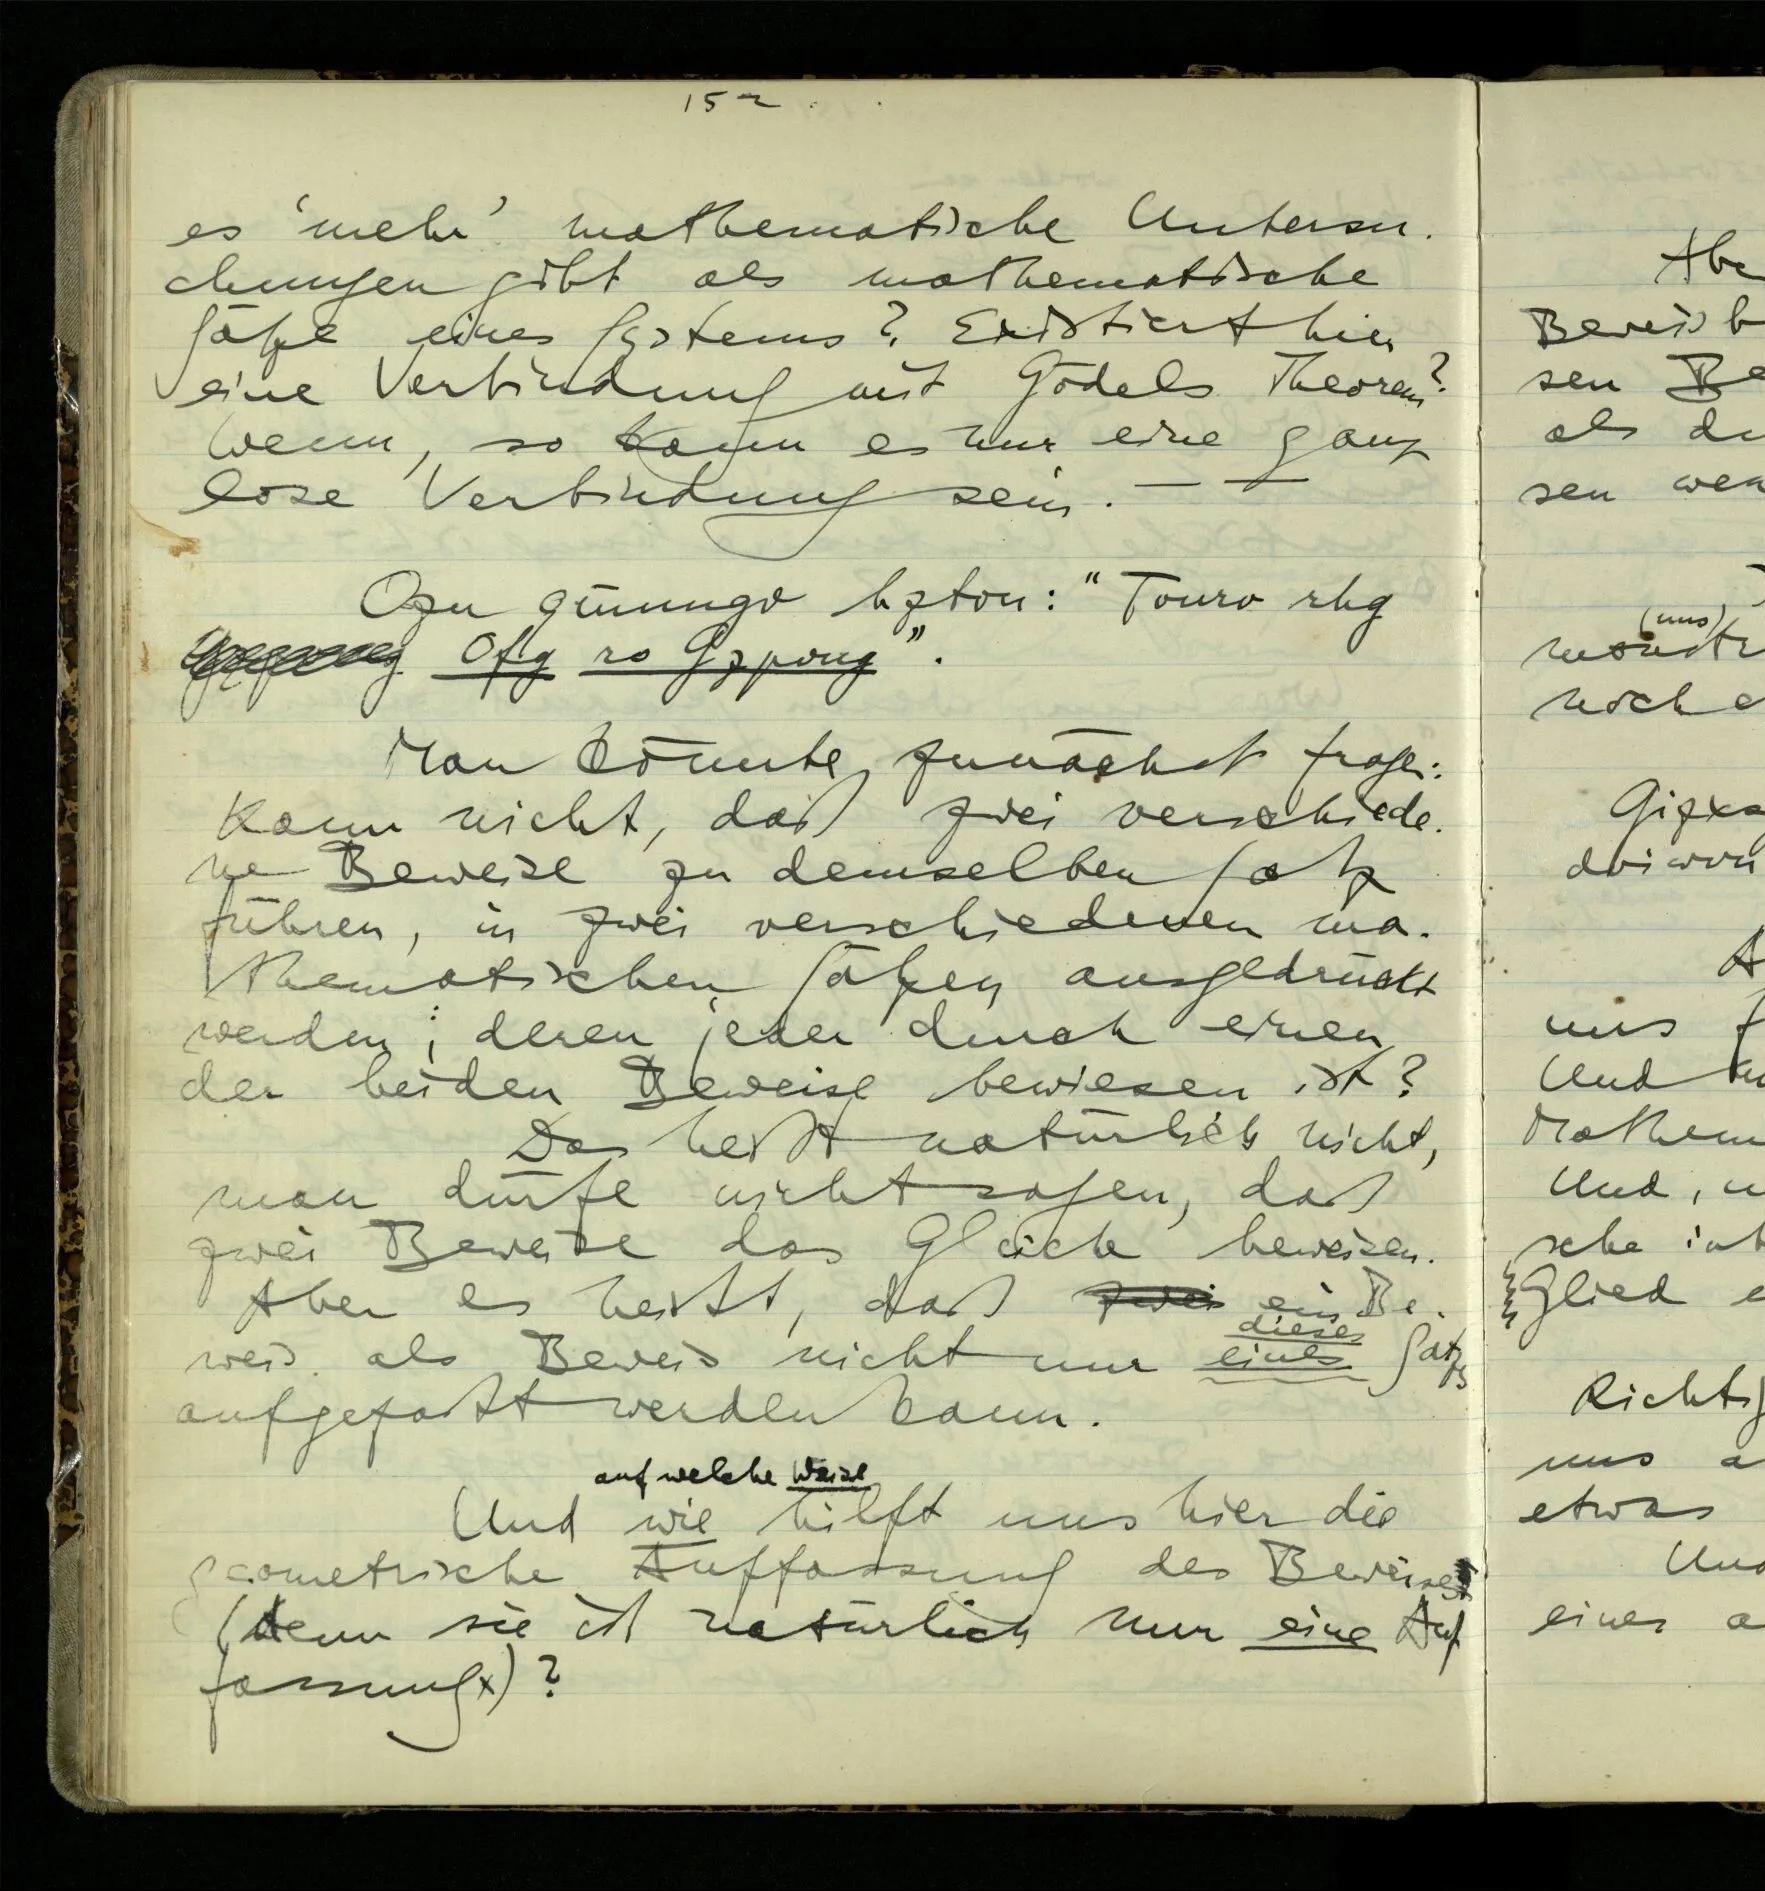 152
es ‘mehr’ mathematische Untersu-
chungen gibt als mathematische
Sätze eines Systems? Existiert hier
eine Verbindung mit Gödels Theorem?
Wenn, so kann es nur eine ganz
lose Verbindung sein. — —
Nzm pömmgv hztvm: “Tvmrv rhg
Nfg rn Gzovmg”.
Man könnte zunächst fragen:
Kann nicht, daß zwei verschiede-
ne Beweise zu demselben Satz
führen, in zwei verschiedenen ma-
thematischen Sätzen ausgedrückt
werden; deren jeder durch einen
der beiden Beweise bewiesen ist?
Das heißt natürlich nicht,
man dürfe nicht sagen, daß
zwei Beweise das Gleiche beweisen.
Aber es heißt, daß zwei ein Be-
dieses
weis als Beweis nicht nur eines Satzes
aufgefaßt werden kann.
auf welche Weise
Und wie hilft uns hier die
geometrische Auffassung des Beweises
(denn sie ist natürlich nur eine Auf
fassung x)?
Beweis b
sen Be
als du
sen wer
(uns)
noch e
A
uns f
Und
Mathem
Und, u
sche int
Glied e
Richtig
uns a
etwas
Und
eines a